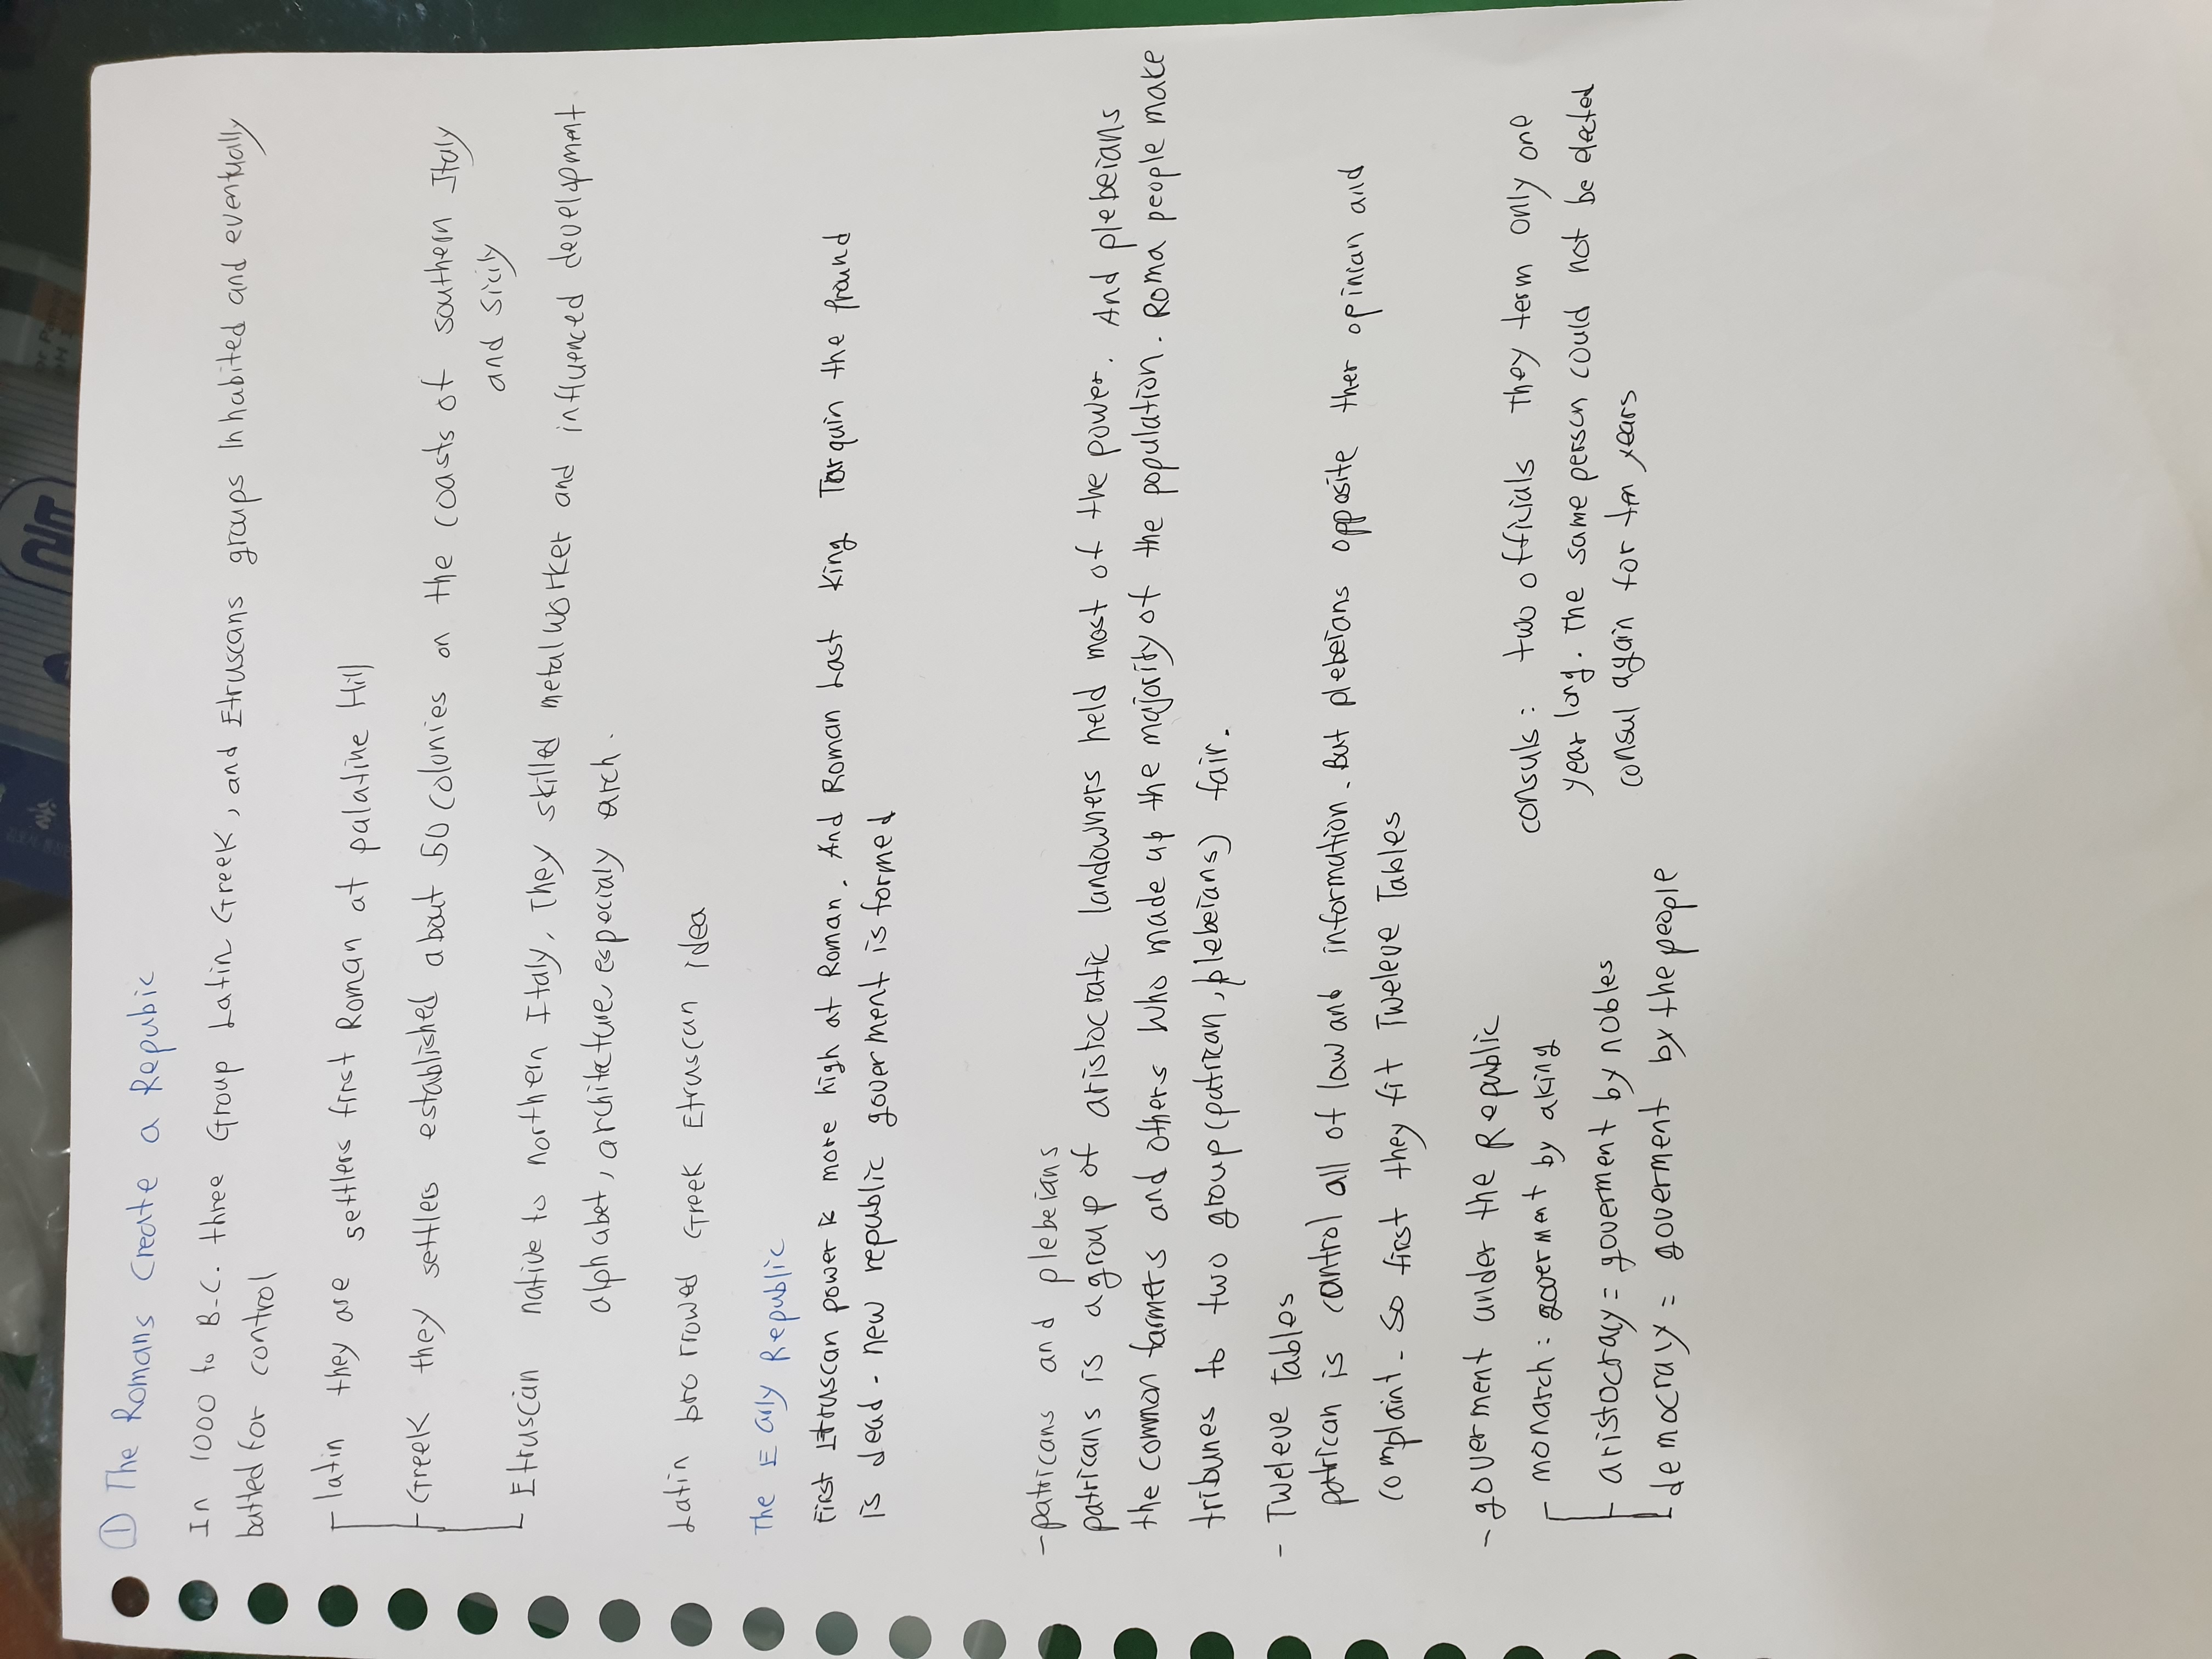 ① The Romans Create a Repubic
In 1000 to B.C. three Group Latin Greek, and Etruscans groups Inhabited and eventually
battled for control
latin they are settlers first Roman at palatine Hill
Greek they settlers established about 50 colonies on the coasts of southern Italy
and sicily
Etruscan native to northern Italy. They skilled metalworker and influenced development
alphabet, architecture, especialy arch.
Latin borrowed Greek Etruscan idea
The Early Republic
First Etruscan power is more high at Roman. And Roman Last King Tarquin the pround
is dead. new republic goverment is formed
- patricans and plebeians
patricans is a group of aristocratic landowners held most of the power. And plebeians
the common farmers and others who made up the majority of the population. Roma people make
tribunes to two group (patrican, plebeians) fair.
- Tweleve Tables
patrican is control all of law and information. But plebeians opposite ther opinian and
complaint. So first they fit Tweleve Tables
- goverment under the Republic
monarch: goverment by aking
aristocracy = goverment by nobles
democracy = goverment by the people
consuls: two officials they term only one
year long. The same person could not be elected
consul again for ten years